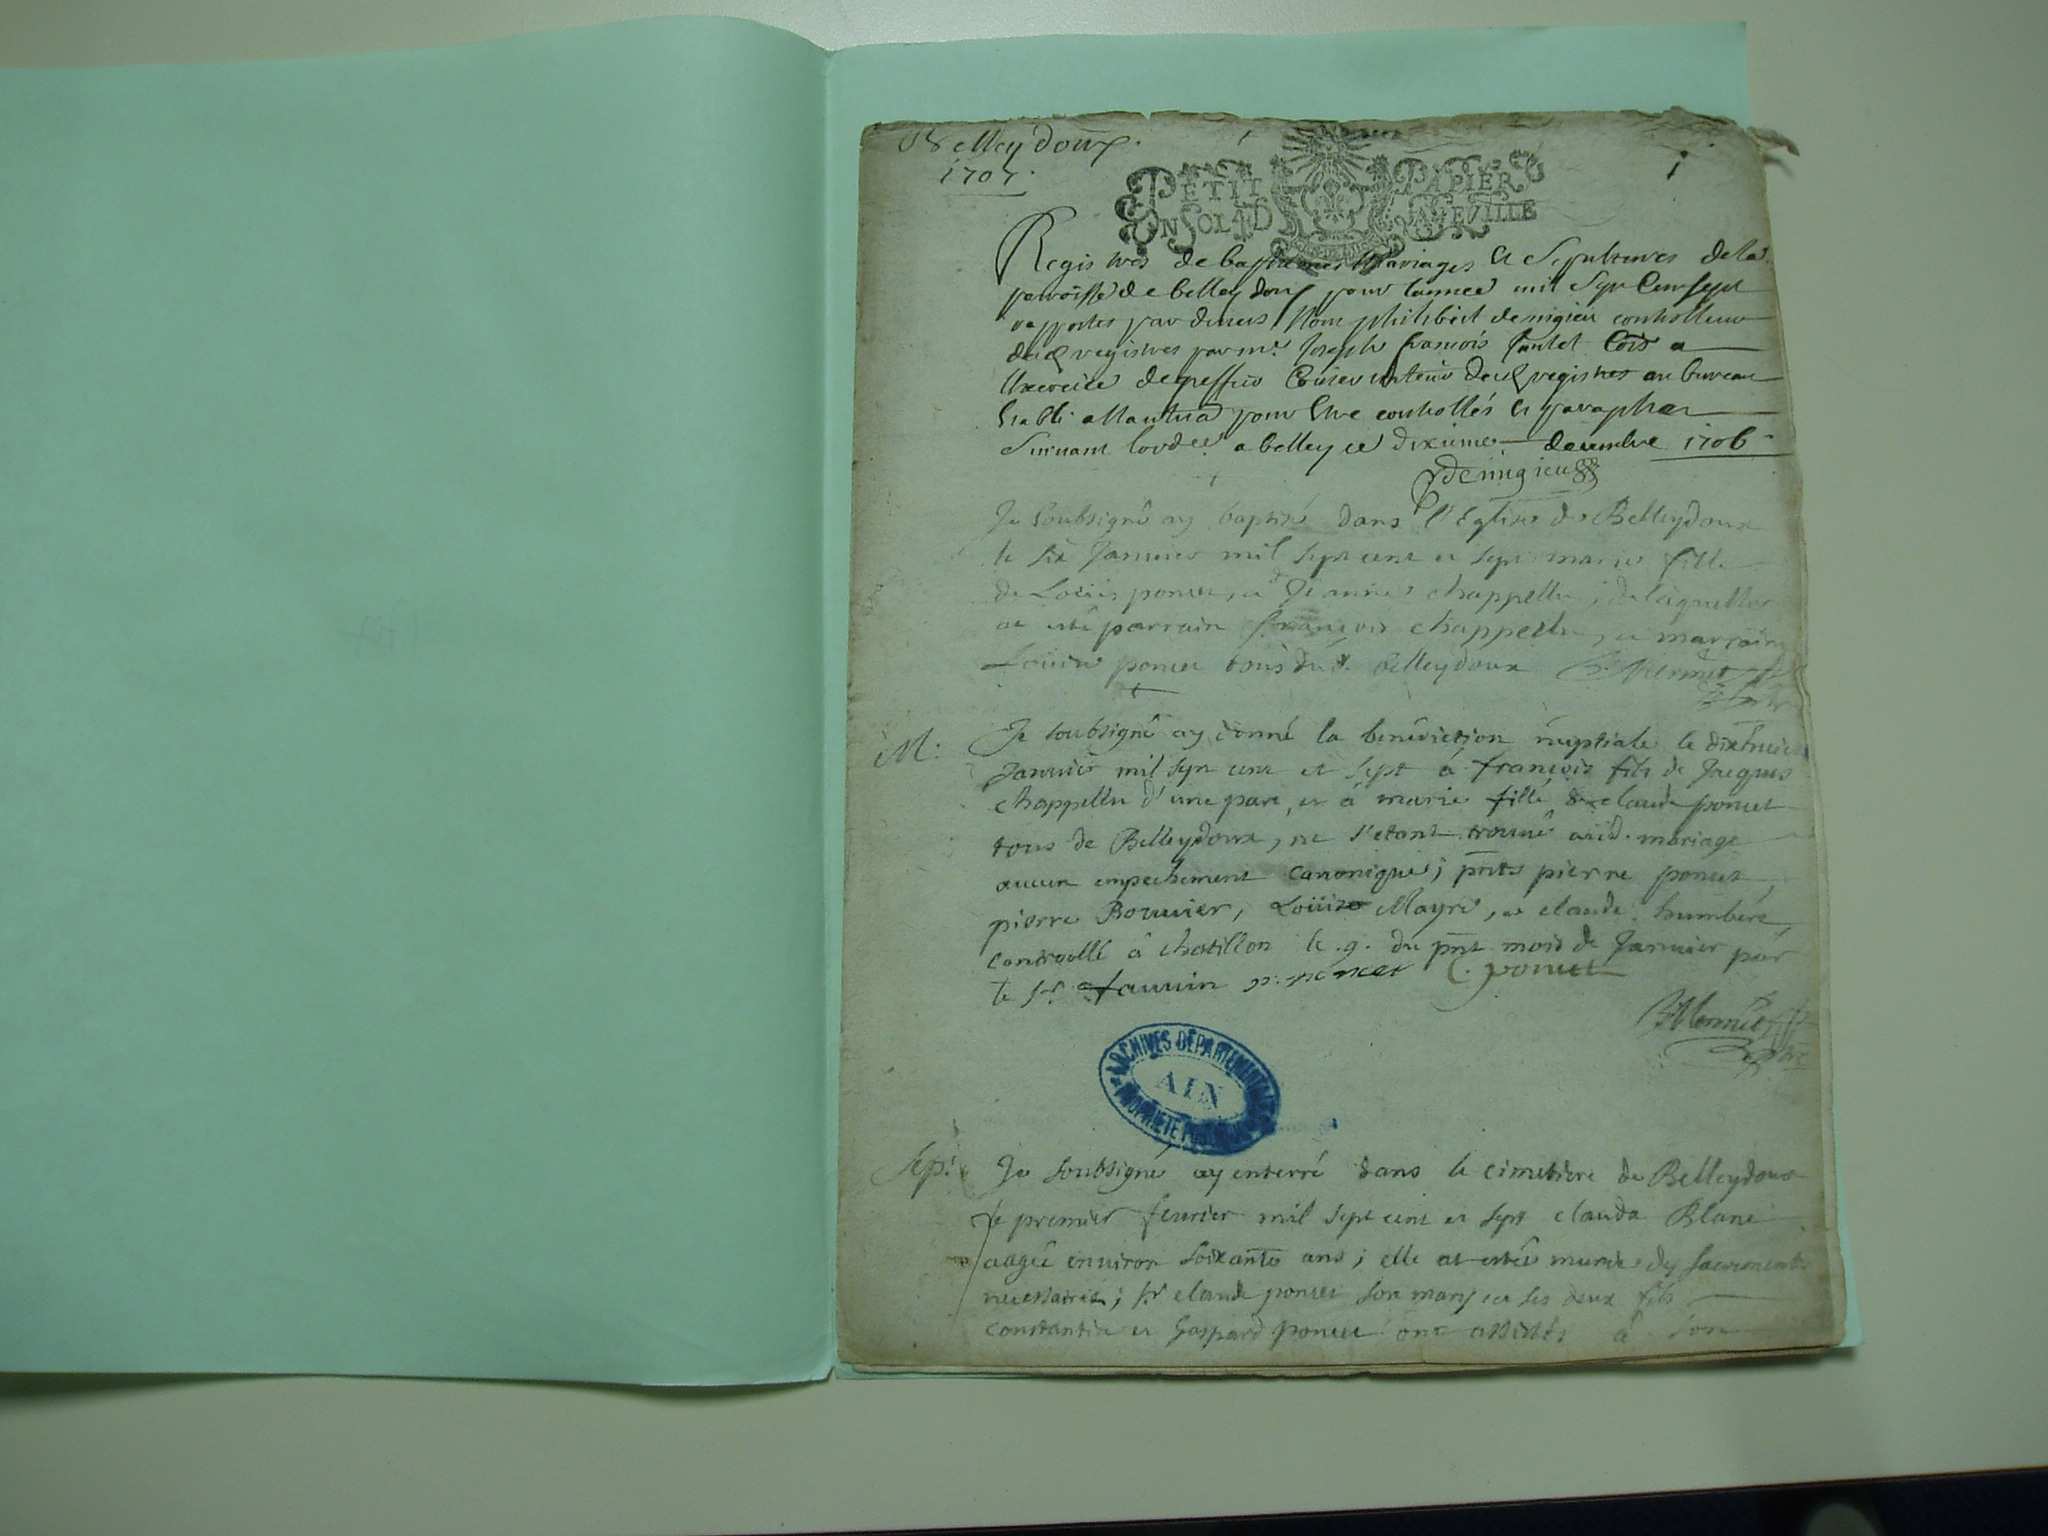 Belleydoux.
1707.
1
PETIT PAPIER
UN SOL 4 D LA FEVILLE
Registres de baptemes Mariages et Sepultures de la
paroisse de belleydoux pour lannee mil Sept Cent sept
par Nous philibert demigieu controlleur
desd registres par me. Joseph francois
Conservateur desd registres au bureau
Etabli a Nantua pour Etre controllés et parapher
Suivant lordce. a belley ce dixieme decembre 1706
demigieu
Je soubsigné ay baptisé dans l'Eglise de Belleydoux
le six Janvier mil sept cent et sept marie fille
de Loüis poncet, et Jeanne chappellu, de laquelle
at esté parrain françois chappellu, et marraine
Loüise poncet tous dud. Belleydoux B. Mermet
M. Je soubsigné ay donné la bénédiction nuptiale le dixhuict
Janvier mil sept cent et sept à françois fils de Jacques
chappellu d'une part, et à marie fille de claude poncet
tous de Belleydoux, ne s'etant trouué aud. mariage
aucun empechement canonique; pnts pierre poncet,
pierre Bouuier, Loüis Mayre, et claude humbert,
controullé à chatillon le .9. du pnt mois de Janvier par
le sr. fauuin p. poncet C. poncet
B. Mermet
ARCHIVES DÉPARTEMENTALES
AIN
PROPRIÉTÉ PUBLIQUE
Sep: Je soubsigné ay enterré dans le cimetiere de Belleydoux
le premier feurier mil sept cent et sept clauda Blanc
aagée enuiron soixante ans; elle at estée munie des sacrements
necessaires; sr claude poncet son mary et ses deux fils
constantin et Gaspard poncet ont assistés à son